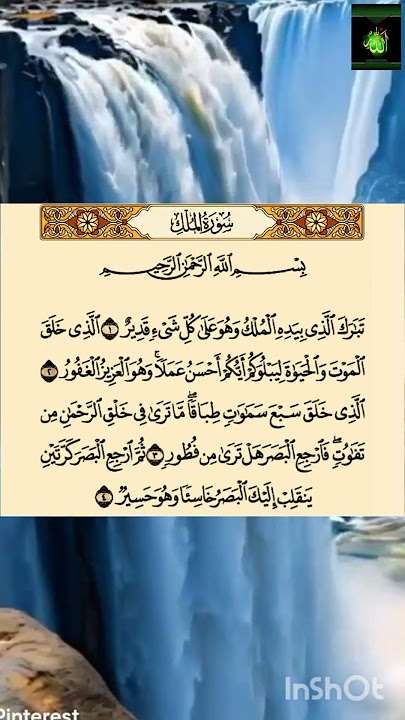 الله
سُورَةُ المُلْكِ
بِسْمِ اللَّهِ الرَّحْمَٰنِ الرَّحِيمِ
تَبَٰرَكَ ٱلَّذِى بِيَدِهِ ٱلْمُلْكُ وَهُوَ عَلَىٰ كُلِّ شَىْءٍ قَدِيرٌ ١ ٱلَّذِى خَلَقَ
ٱلْمَوْتَ وَٱلْحَيَوٰةَ لِيَبْلُوَكُمْ أَيُّكُمْ أَحْسَنُ عَمَلًا ۚ وَهُوَ ٱلْعَزِيزُ ٱلْغَفُورُ ٢
ٱلَّذِى خَلَقَ سَبْعَ سَمَٰوَٰتٍ طِبَاقًا ۖ مَّا تَرَىٰ فِى خَلْقِ ٱلرَّحْمَٰنِ مِن
تَفَٰوُتٍ ۖ فَٱرْجِعِ ٱلْبَصَرَ هَلْ تَرَىٰ مِن فُطُورٍ ٣ ثُمَّ ٱرْجِعِ ٱلْبَصَرَ كَرَّتَيْنِ
يَنقَلِبْ إِلَيْكَ ٱلْبَصَرُ خَاسِئًا وَهُوَ حَسِيرٌ ٤
InShOt
Pinterest